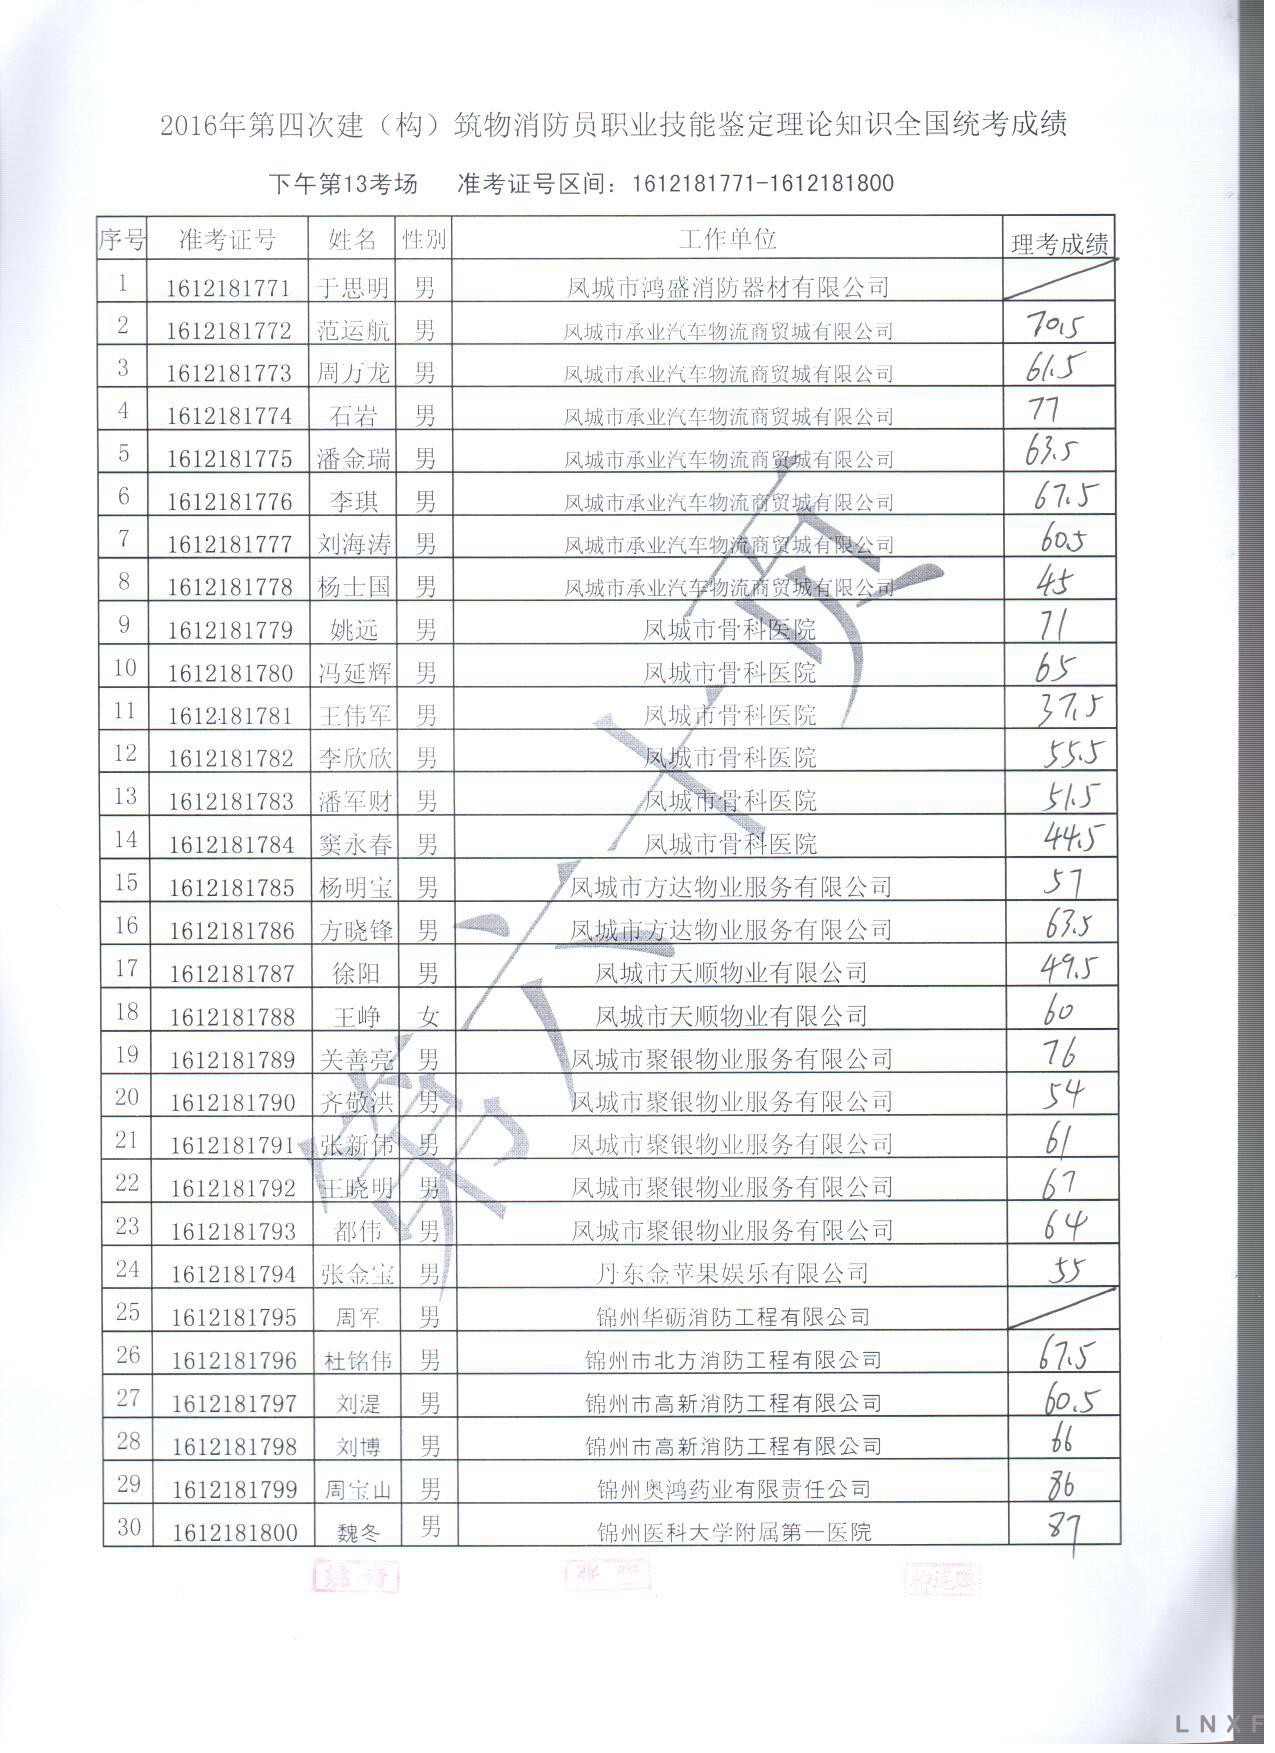 2016年第四次建（构）筑物消防员职业技能鉴定理论知识全国统考成绩
下午第13考场 准考证号区间：1612181771-1612181800
序号 准考证号 姓名 性别 工作单位 理考成绩
1 1612181771 于思明 男 凤城市鸿盛消防器材有限公司
2 1612181772 范运航 男 凤城市承业汽车物流商贸城有限公司 70.5
3 1612181773 周万龙 男 凤城市承业汽车物流商贸城有限公司 61.5
4 1612181774 石岩 男 凤城市承业汽车物流商贸城有限公司 77
5 1612181775 潘金瑞 男 凤城市承业汽车物流商贸城有限公司 63.5
6 1612181776 李琪 男 凤城市承业汽车物流商贸城有限公司 67.5
7 1612181777 刘海涛 男 凤城市承业汽车物流商贸城有限公司 60.5
8 1612181778 杨士国 男 凤城市承业汽车物流商贸城有限公司 45
9 1612181779 姚远 男 凤城市骨科医院 71
10 1612181780 冯延辉 男 凤城市骨科医院 65
11 1612181781 王伟军 男 凤城市骨科医院 37.5
12 1612181782 李欣欣 男 凤城市骨科医院 55.5
13 1612181783 潘军财 男 凤城市骨科医院 51.5
14 1612181784 窦永春 男 凤城市骨科医院 44.5
15 1612181785 杨明宝 男 凤城市方达物业服务有限公司 57
16 1612181786 方晓锋 男 凤城市方达物业服务有限公司 63.5
17 1612181787 徐阳 男 凤城市天顺物业有限公司 49.5
18 1612181788 王峥 女 凤城市天顺物业有限公司 60
19 1612181789 关善亮 男 凤城市聚银物业服务有限公司 76
20 1612181790 齐敬洪 男 凤城市聚银物业服务有限公司 54
21 1612181791 张新伟 男 凤城市聚银物业服务有限公司 61
22 1612181792 王晓明 男 凤城市聚银物业服务有限公司 67
23 1612181793 都伟 男 凤城市聚银物业服务有限公司 64
24 1612181794 张金宝 男 丹东金苹果娱乐有限公司 55
25 1612181795 周军 男 锦州华砺消防工程有限公司
26 1612181796 杜铭伟 男 锦州市北方消防工程有限公司 67.5
27 1612181797 刘湜 男 锦州市高新消防工程有限公司 60.5
28 1612181798 刘博 男 锦州市高新消防工程有限公司 66
29 1612181799 周宝山 男 锦州奥鸿药业有限责任公司 86
30 1612181800 魏冬 男 锦州医科大学附属第一医院 87
第六十页
LNXF